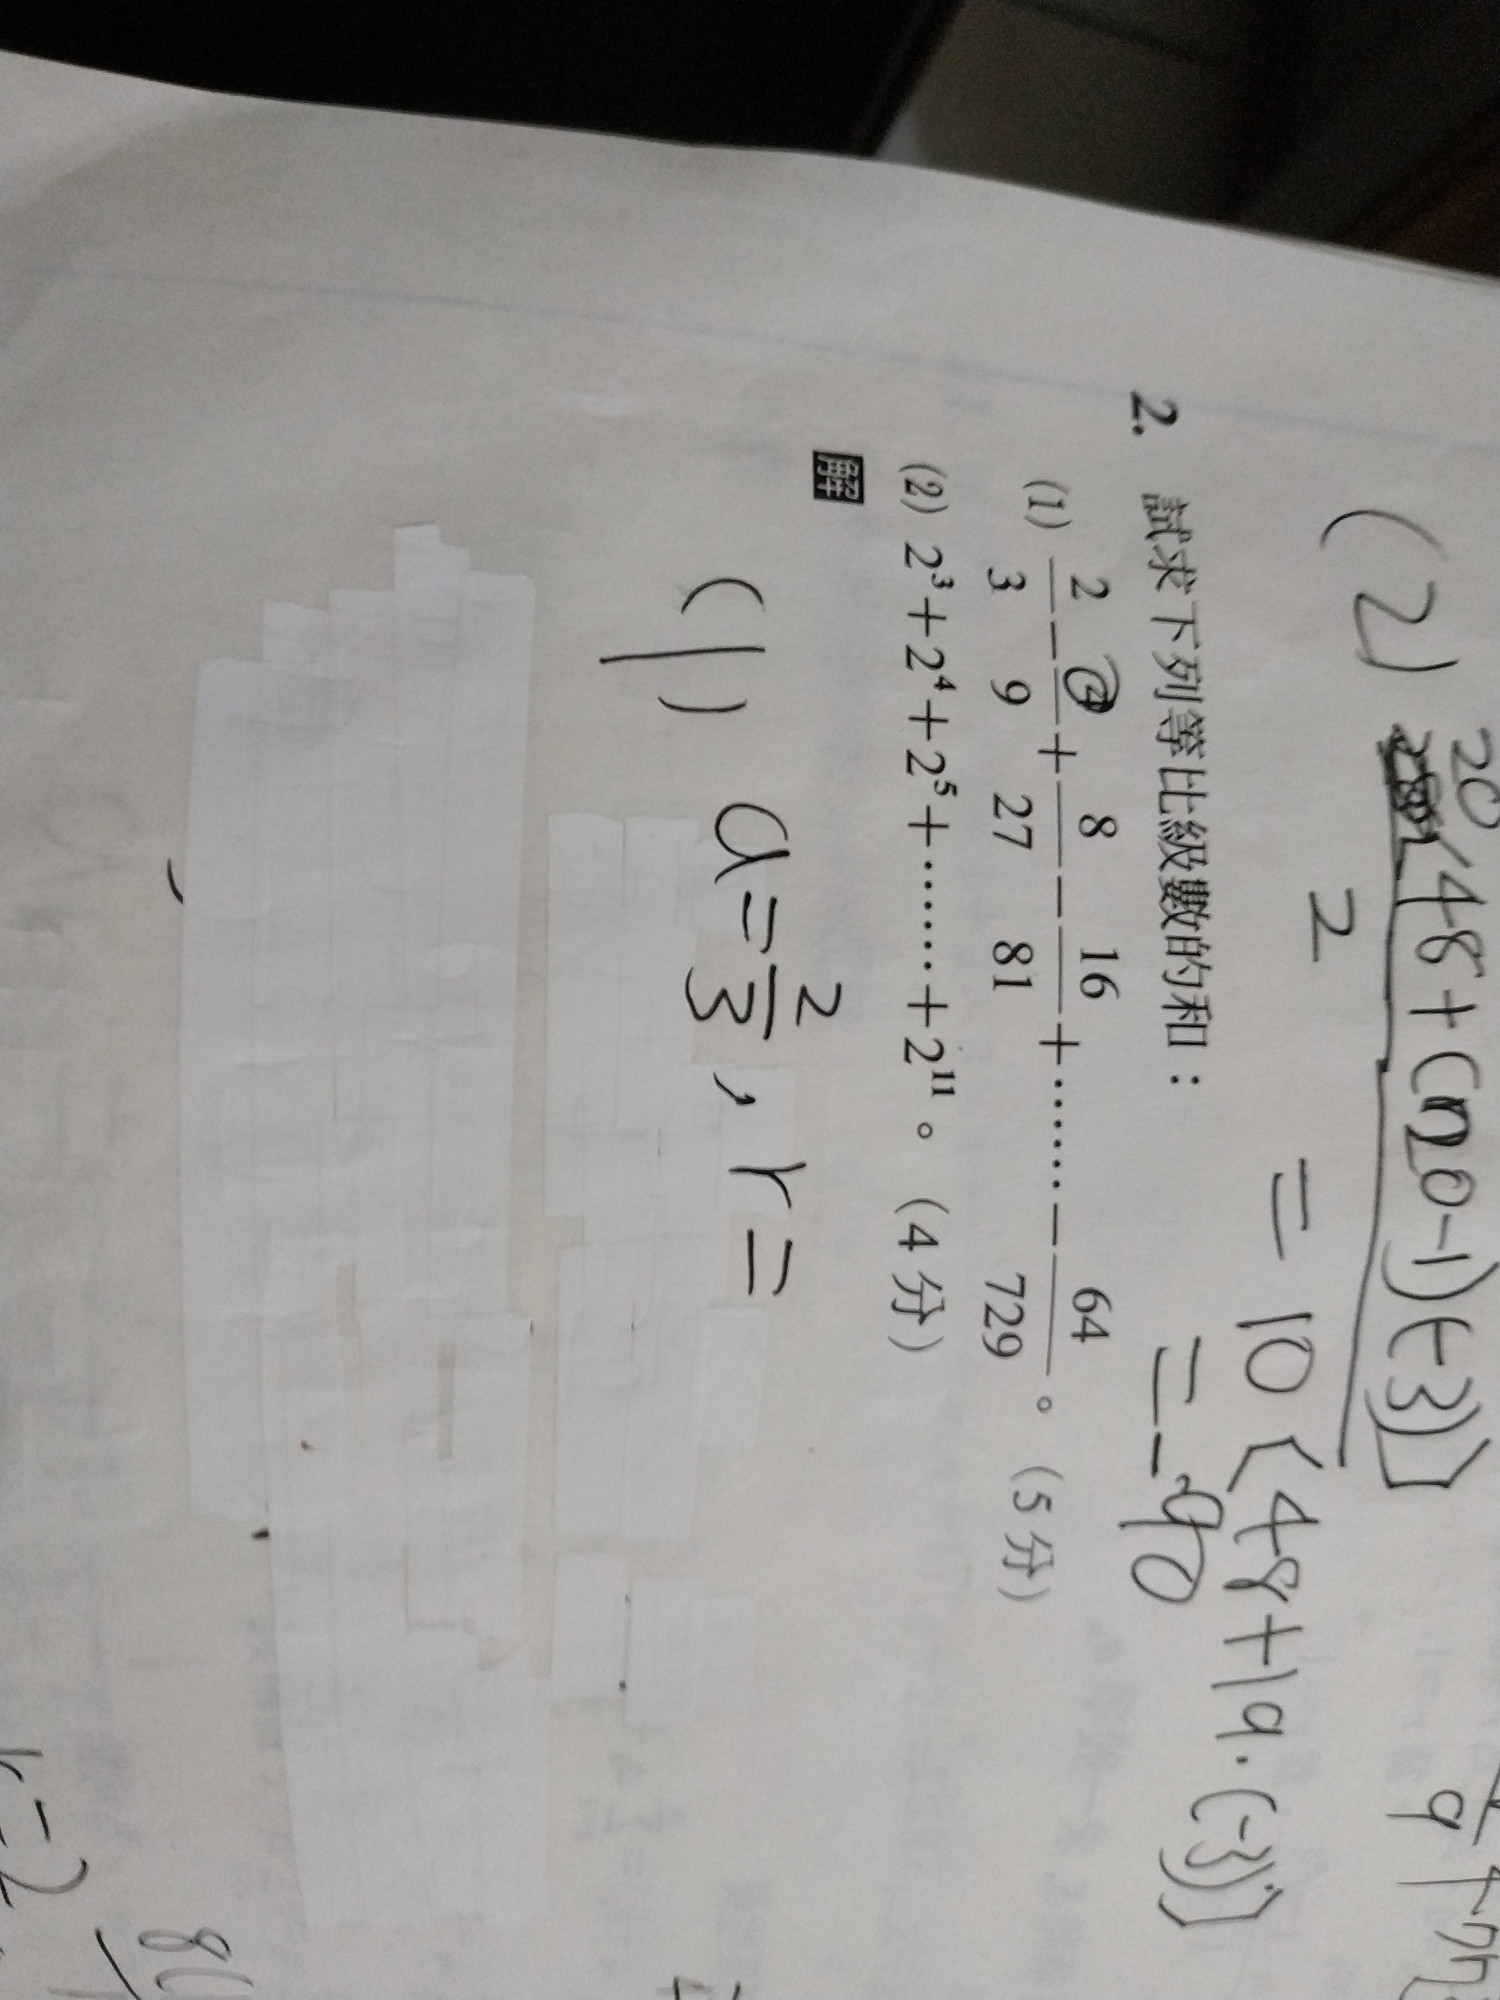 (2) 20(48+(20-1)(-3))
2
=10(48+19·(-3))
=-90
2. 試求下列等比級數的和：
(1) 2/3 - 4/9 + 8/27 - 16/81 + …… - 64/729。（5分）
(2) 2³+2⁴+2⁵+……+2¹¹。（4分）
解
(1) a=2/3, r=
r=2